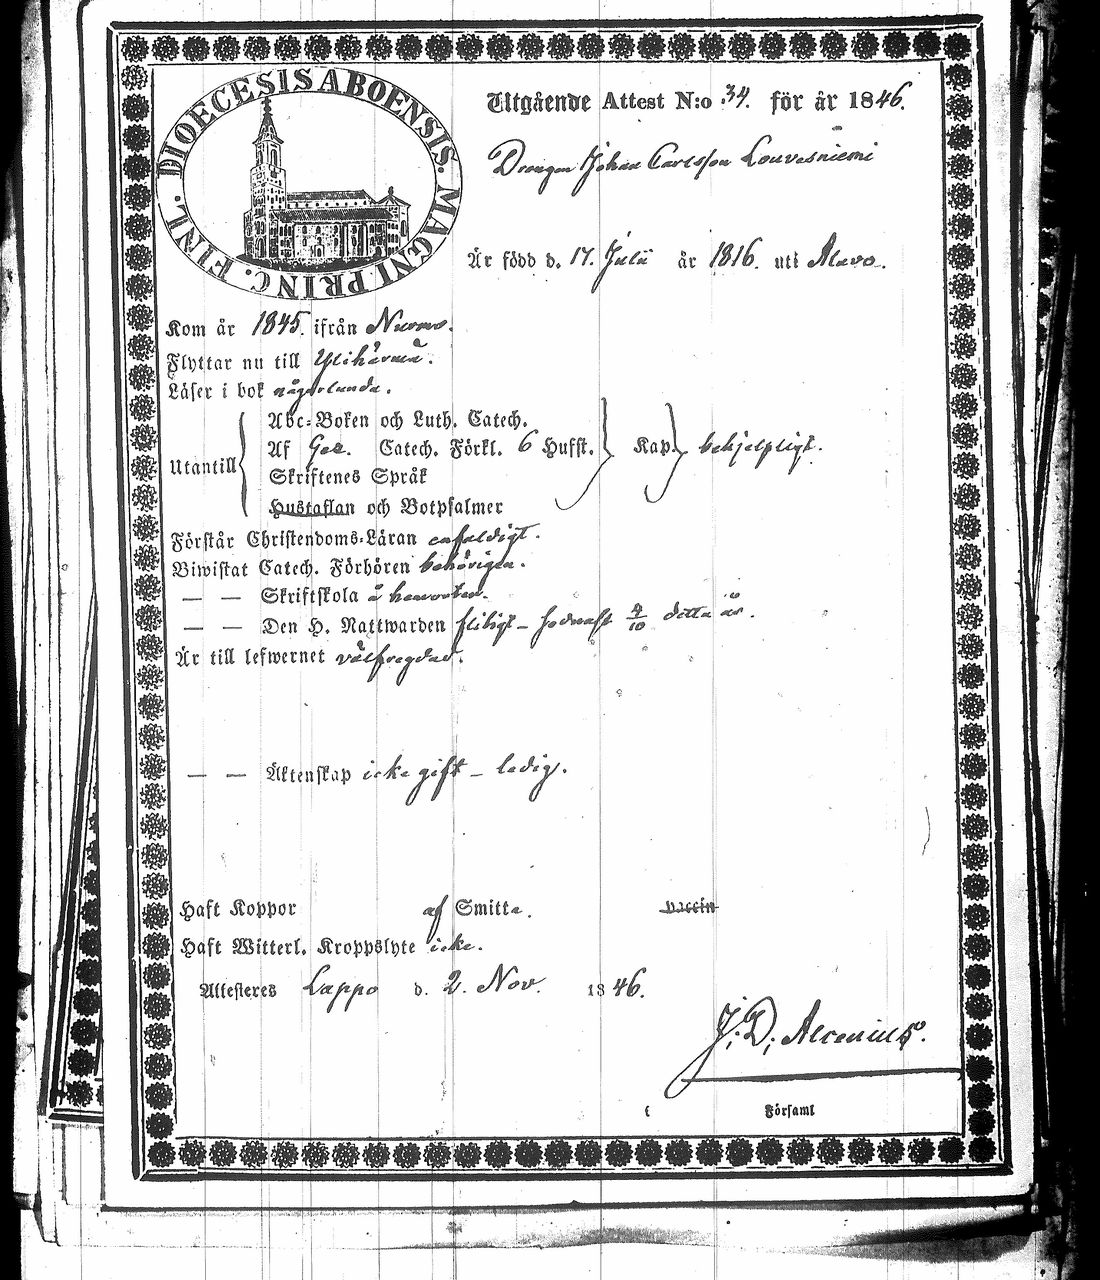 DIOECESIS ABOENSIS. MAGNI PRINC. FINL.
Utgående Attest N:o 34. för år 1846.
Drengen Johan Carlsson Louvesniemi
Är född d. 17. Julii år 1816. uti Alavo.
Kom år 1845. ifrån Nurmo.
Flyttar nu till Ylihärmä.
Läser i bok någorlunda.
Utantill
Abc-Boken och Luth. Catech.
Af Catech. Förkl. 6 Hufst. Kap. behjelpligt.
Skriftenes Språk
Hustaflan och Botpsalmer
Förstår Christendoms-Läran enfaldigt.
Biwistat Catech. Förhören behörigen.
— — Skriftskola å
— — Den H. Nattwarden flitigt - sednast 4/10 detta år.
Är till lefwernet välfregdad.
— — Äktenskap icke gift - ledig.
Haft Koppor af Smitta. vaccin
Haft Witterl. Kroppslyte icke.
Attesteres Lappo d. 2. Nov. 1846.
J; D; Alcenius.
Församl